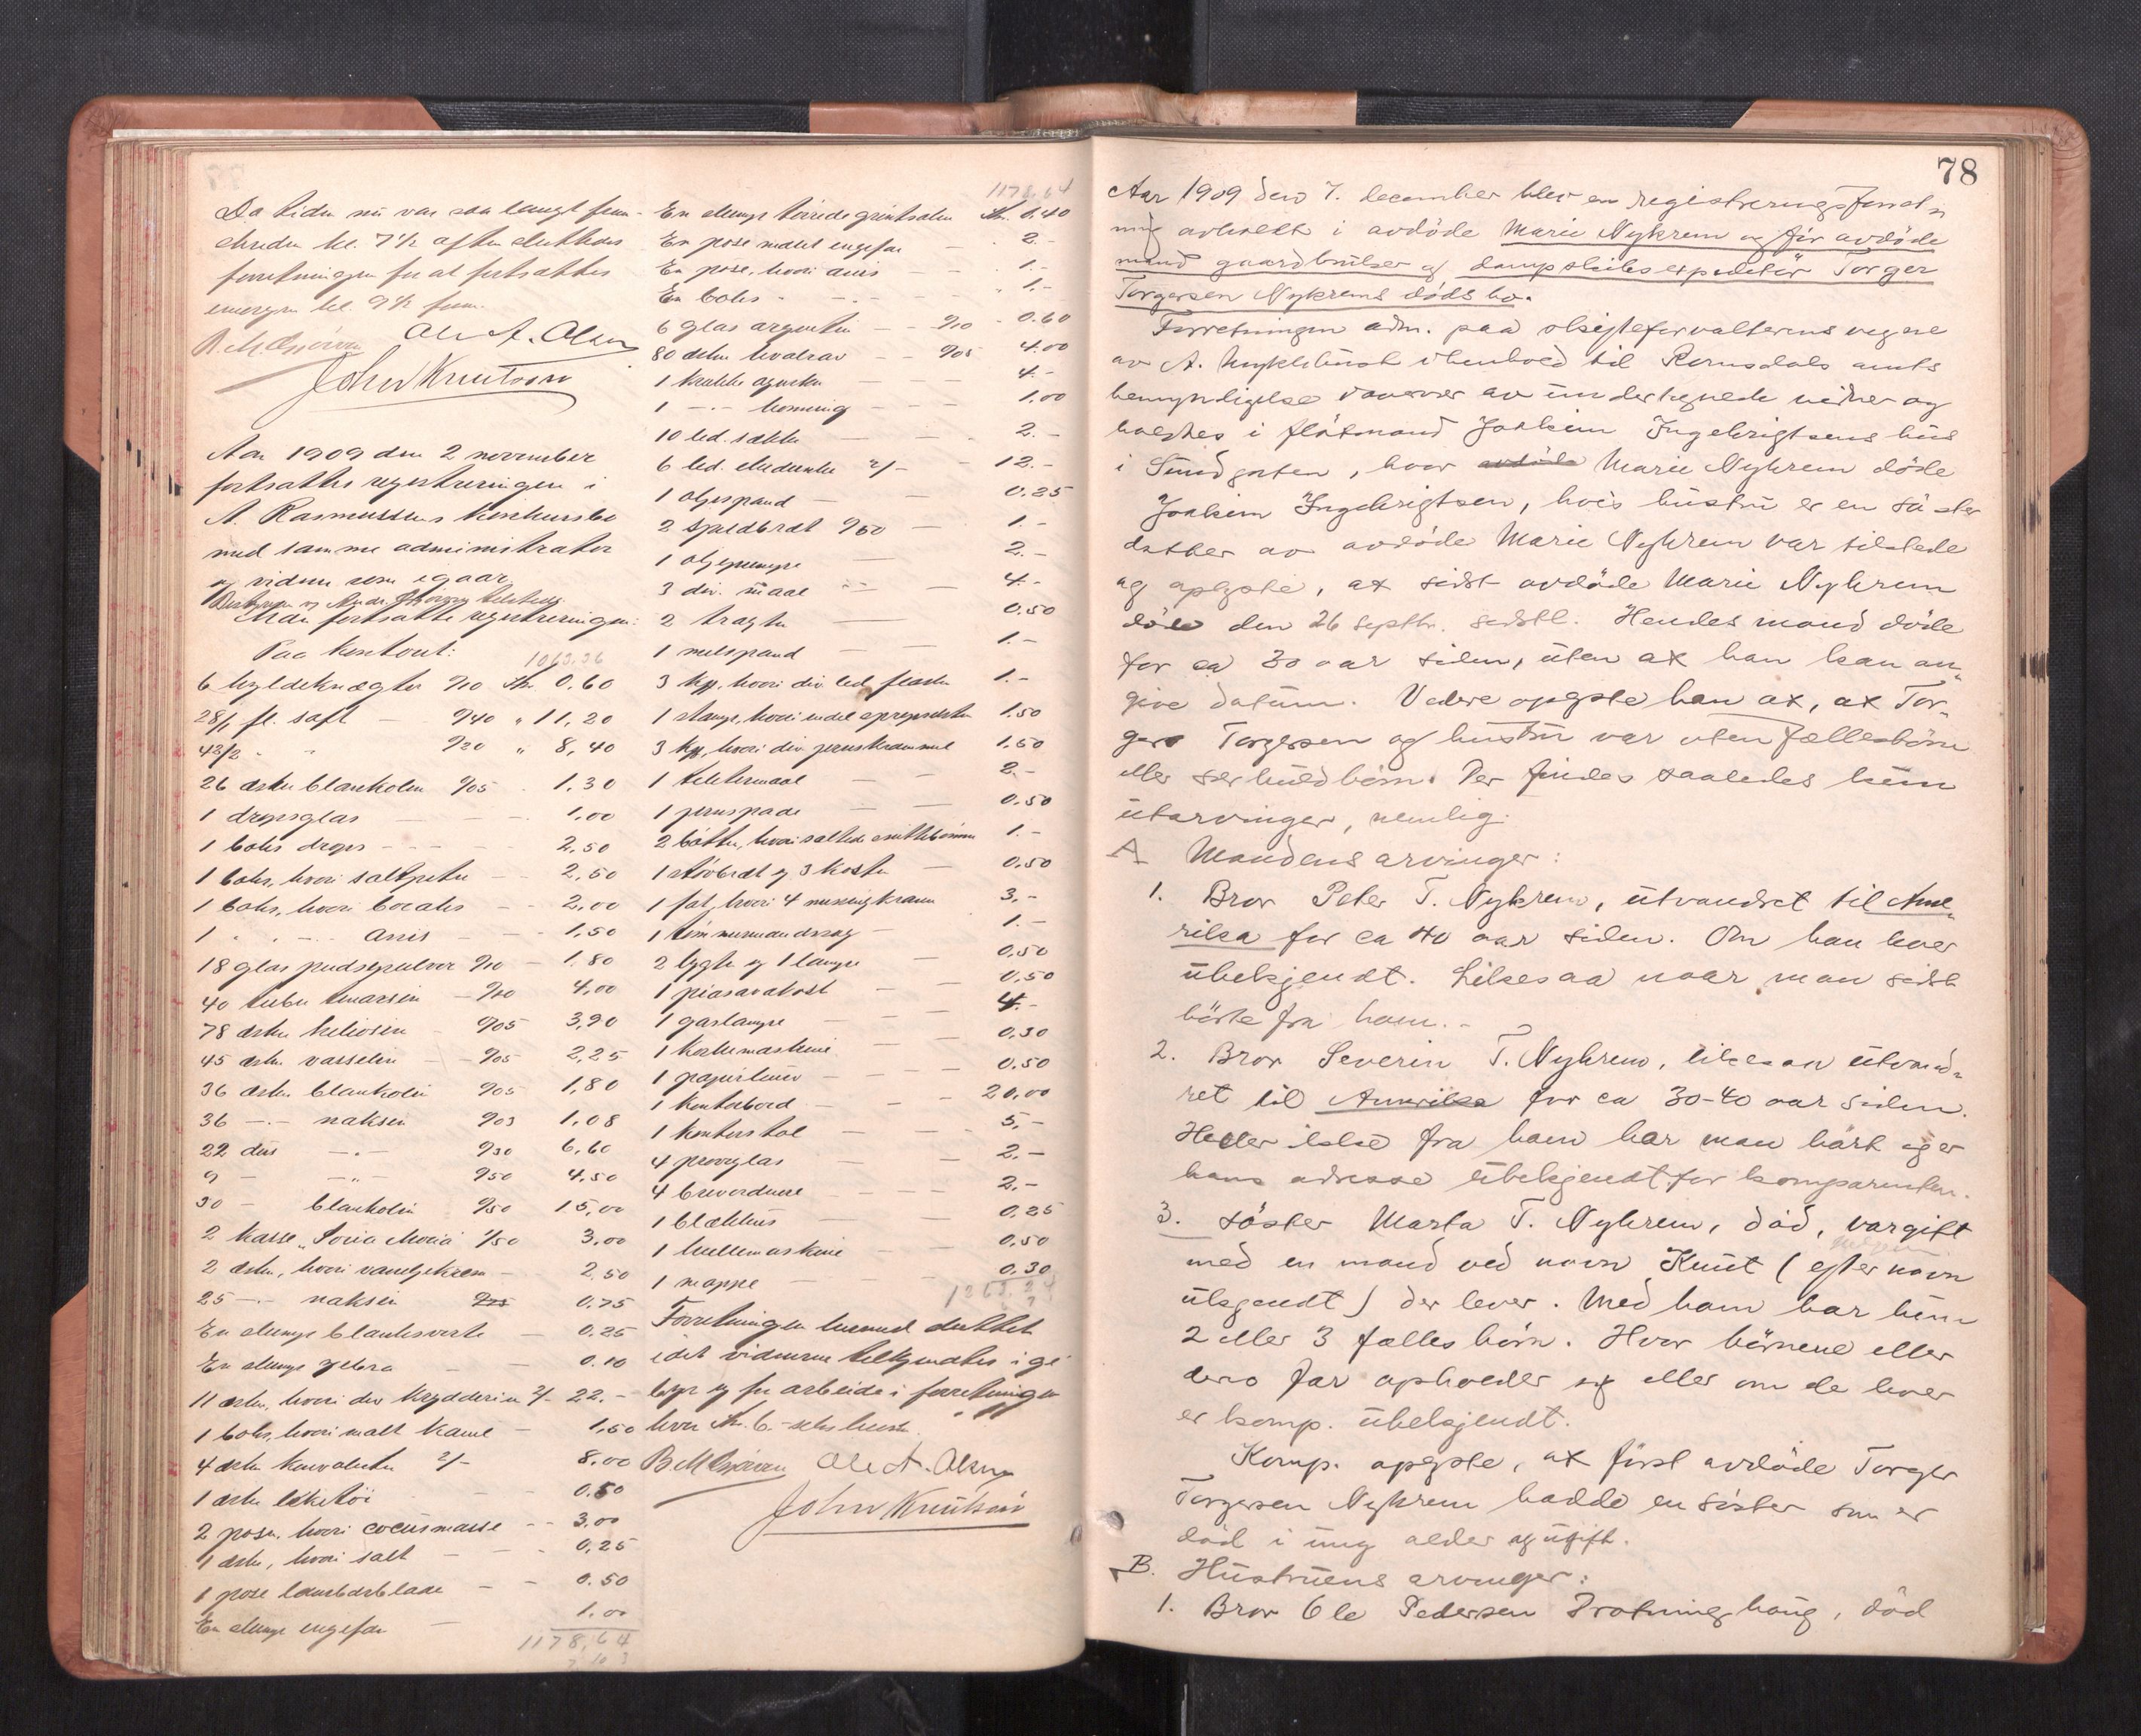 Da tiden nu var saa langt frem-
skreden kl. 7½ aften sluttedes
forretningen for at fortsættes
imorgen kl. 9½ form.
Ole A. Olsen
John Knutson
Aar 1909 den 2 november
fortsattes registreringen i
A. Rasmussens konkursbo
med samme administrator
og vidner som igaar.
Man fortsatte registreringen:
Paa kontoret: 1063,36
6 hyldeknægter 0/10 Kr. 0,60
28/1 fl. saft — 0/40 " 11,20
42/2 - " 0/20 " 8,40
26 æsker blankolin 0/05 - 1,30
1 dropsglas — 1,00
1 boks drops — 2,50
1 boks, hvori saltpeter — 2,50
1 boks, hvori boraks — 2,00
1 " -"- anis — 1,50
18 glas pudsepulver 0/10 — 1,80
40 tuber — 0/10 4,00
78 æsker heliosin 0/05 3,90
45 æsker vasselin — 0/05 2,25
36 æsker blankolin 0/05 1,80
36 -"- naksin 0/03 1,08
22 dus -"- 0/30 6,60
9 - -"- 0/50 4,50
30 - blankolin 0/50 15,00
2 kasse "Soria Moria" 1/50 3,00
2 æsker, hvori vandgekrem — 2,50
25 -"- naksin 0,75
En slump blanksverte — 0,25
En slump zebra — 0,10
11 æsker, hvori div krydderier 2/- 22.-
1 boks, hvori malt kanel — 1,50
4 æsker 2/- 8,00
1 æske leketøi 0,50
2 poser, hvori cocusmasse — 3,00
1 æske, hvori salt — 0,25
1 pose laurbærblade — 0.50
En slump engefær — 1,00
1178,64
1178,64
En slump tørrede grøntsaker Kr. 0,40
En pose malet engefær — 2.-
En pose, hvori anis — 1.-
En boks - -"- 1.-
6 glas argentin — 0/10 - 0.60
80 æsker hvalrav — 0/05 4.00
1 krukke agurker — 4.-
1 -"- honning — 1,00
10 led. sække — 2.-
6 led. 2/- — 12.-
1 oljespand — 0.25
2 spildbræt 0/50 — 1.-
1 oljepumpe — 2.-
3 div. maal — 4.-
2 tragter — 0.50
1 melspand — 1.-
3 kp, hvori div led. flasker 1.-
1 slump, hvori endel 1.50
3 kp, hvori div jernskrammel 1.50
1 litermaal — 2.-
1 jernspade — 0.50
2 bøtter, hvori saltede snittebønner 1.-
1 støvbræt og 3 koster — 0,50
1 fat, hvori 4 messingkraner 3,-
1 tømmermandssag — 1.-
2 lygter og 1 lampe — 0,50
1 piasavakost — 0,50
1 gaslampe — 4.-
1 korkemaskine — 0,30
1 papirkniv — 0.50
1 kontorbord — 20,00
1 kontorstol — 5.-
4 prøveglas — 2.-
4 brevordnere — 2.-
1 blækhus — 0,25
1 hullemaskine — 0,50
1 mappe — 0.30
Forretningen hermed sluttet
idet vidnerne tilkjendtes i ge
byr og for arbeide i forretningen
hver Kr. 6.- seks kroner.
Ole A. Olsen
John Knutson
78
Aar 1909 den 7. december blev en registreringsforret-
ning avholdt i avdöde Marie Nykrem og för avdöde
mand gaardbruker og dampskibsexpeditör Torger
Torgersen Nykrems dödsbo.
Forretningen adm. paa skifteforvalterens vegne
av A. Myklebust i henhold til Romsdals amts
bemyndigelse i overvær av undertegnede vidner og
holdtes i flötmand Joakim Ingebrigtsens hus
i Sundgaten, hvor avdöde Marie Nykrem döde
Joakim Ingebrigtsen, hvis hustru er en sö ster
datter av avdöde Marie Nykrem var tilstede
og oplyste, at sidst avdöde Marie Nykrem
döde den 26 septbr. sidstl. Hendes mand döde
for ca 30 aar siden, uten at han kan an-
give datum. Videre oplyste han at, at Tor-
ger Torgersen og hustru var uten fællesbörn
eller særkuldbörn. Der findes saaledes kun
utarvinger, nemlig:
A Mandens arvinger:
1. Bror Peter T. Nykrem, utvandret til Ame-
rika for ca 40 aar siden. Om han lever
ubekjendt. Likesaa naar man sidst
hörte fra ham. -
2. Bror Severin T. Nykrem, likesaa utvand-
ret til Amerika for ca 30-40 aar siden.
Heller ikke fra ham har man hört og er
hans adresse ubekjendt for komparenten.
3. Söster Marta T. Nykrem, död, var gift
med en mand ved navn Knut (efternavn
ukjendt) der lever. Med ham har hun
2 eller 3 fælles börn. Hvor börnene eller
deres far opholder sig eller om de lever
er komp. ubekjendt.
Komp. oplyste, at först avdöde Torger
Torgersen Nykrem hadde en söster som er
död i ung alder og ugift.
B. Hustruens arvinger:
1. Bror Ole Pedersen Dronninghaug, död